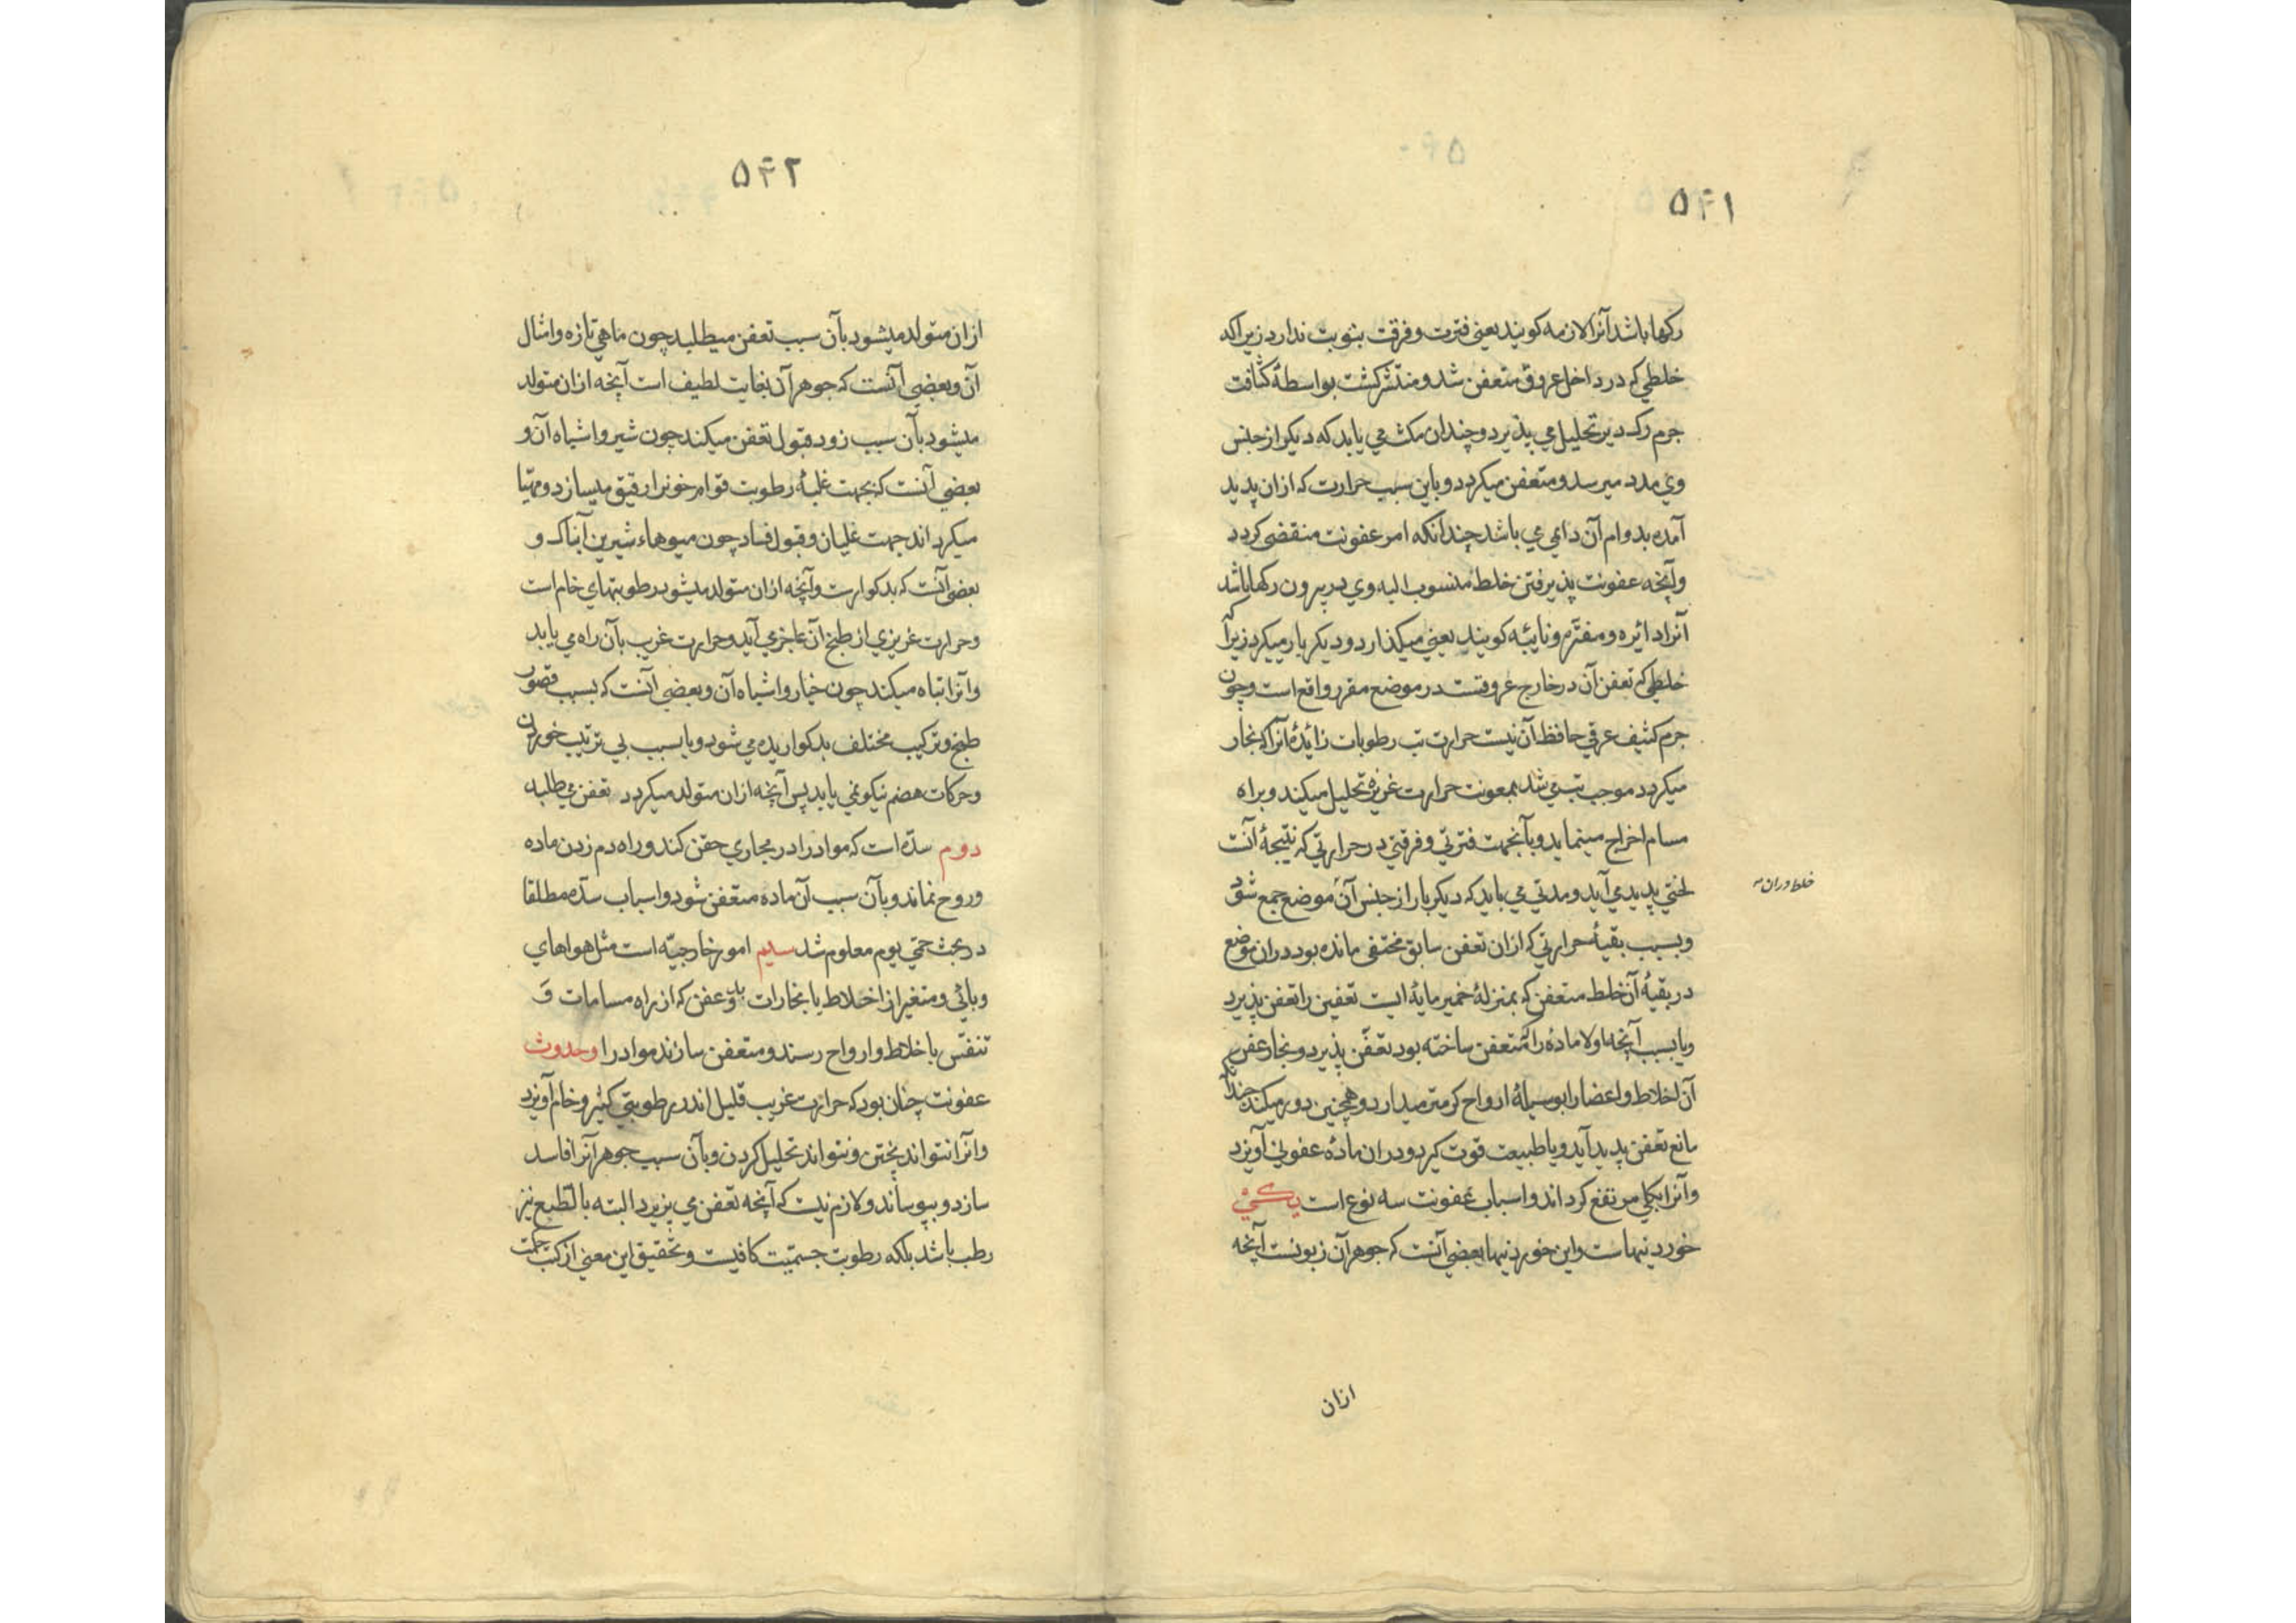 ۵۴۱
رکها باشد آنرا لازمه کویند یعنی فترت و فرقت بنوبت ندارد زیراکه
خلطی که در داخل عروق متعفن شد و منتشر کشت بواسطهٔ کثافت
جرم رک دیر تحلیل می پذیرد و چندان مکث می یابد که دیکر از جنس
وی مدد میرسد و متعفن میکردد و باین سبب حرارت که ازان پدید
آمده بدوام آن دایمی می باشد چندانکه امر عفونت منقضی کردد
و آنچه عفونت پذیرفتن خلط منسوب الیه وی در بیرون رکها باشد
آنرا دائره و مفتّره و نایبه کویند یعنی میکذارد و دیکر بار میکرد زیرا که
خلطی که تعفن آن در خارج عروقست در موضع مقرر واقع است و چون
جرم کثیف عرقی حافظ آن نیست حرارت تب رطوبات زائدهٔ آنرا که بخار
میکردد موجب تب می شد بمعونت حرارت غریزه تحلیل میکند و براه
مسام اخراج مینماید و بآنجهت فترتی و فرقتی در حرارتی که نتیجهٔ آنست
لختی پدید می آید و مدتی می باید که دیکر بار از جنس آن موضع جمع شود
خلط دران
و بسبب بقیهٔ حرارتی که ازان تعفن سابق مختفی مانده بود دران موضع
در بقیهٔ آن خلط متعفن که بمنزلهٔ خمیر مایهٔ ایست تعفین را تعفن پذیرد
و یا بسبب آنچه اولا مادهٔ را که متعفن ساخته بود تعفّن پذیرد و بخار عفن
آن اخلاط و اعضا را بوسیلهٔ ارواح کرمتر میدارد و همچنین دور میکند چندانکه
مانع تعفن پدید آید و یا طبیعت قوت کیرد و دران مادهٔ عفونی آویزد
و آنرا بکلی مرتفع کرداند و اسباب عفونت سه نوع است یکی
خوردنیهاست و این خوردنیها بعضی آنست که جوهر آن زبونست آنچه
ازان
۵۴۲
ازان متولد میشود بآن سبب تعفن میطلبد چون ماهی تازه و امثال
آن و بعضی آنست که جوهر آن بغایت لطیف است آنچه ازان متولد
میشود بآن سبب زود قبول تعفن میکند چون شیر و اشباه آن و
بعضی آنست که بجهت غلبهٔ رطوبت قوام خونرا رقیق میسازد و مهیّا
میکرداند جهت غلیان و قبول فساد چون میوهاء شیرین آبناک و
بعضی آنست که بدکوارست و آنچه ازان متولد میشود رطوبتهای خام است
و حرارت غریزی از طبخ آن عاجز می آید و حرارت غریب بآن راه می یابد
و آنرا تباه میکند چون خیار و اشباه آن و بعضی آنست که بسبب قصور
طبخ و ترکیب مختلف بدکواریده می شود و یا بسبب بی ترتیب خوردن
و حرکات هضم نیکو نمی یابد پس آنچه ازان متولد میکردد تعفن می طلبد
دوم سدّه است که مواد را در مجاری حقن کند و راه دم زدن ماده
و روح نماند و بآن سبب آن ماده متعفن شود و اسباب سدّه مطلقا
در بحث حمّی یوم معلوم شد سیم امور خارجیّه است مثل هواهای
وبائی و متغیر از اختلاط با بخارات بد و عفن که از راه مسامات و
تنفّس باخلاط و ارواح رسند و متعفن سازند مواد را و حدوث
عفونت چنان بود که حرارت غریب قلیل اندر رطوبتی کثیر و خام آویزد
و آنرا نتواند پختن و نتواند تحلیل کردن و بآن سبب جوهر آنرا فاسد
سازد و بپوساند و لازم نیست که آنچه تعفن می پزیرد البته بالطبع نیز
رطب باشد بلکه رطوبت جسمیّت کافیست و تحقیق این معنی از کتب حکمت